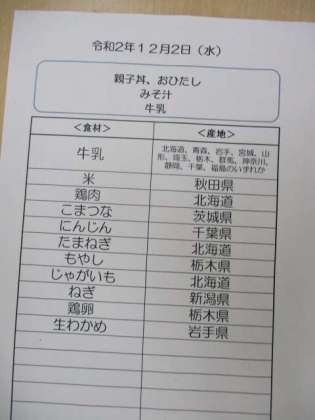 令和2年12月2日（水）
親子丼、おひたし
みそ汁
牛乳
＜食材＞ ＜産地＞
牛乳 北海道、青森、岩手、宮城、山形、埼玉、栃木、群馬、神奈川、静岡、千葉、福島のいずれか
米 秋田県
鶏肉 北海道
こまつな 茨城県
にんじん 千葉県
たまねぎ 北海道
もやし 栃木県
じゃがいも 北海道
ねぎ 新潟県
鶏卵 栃木県
生わかめ 岩手県